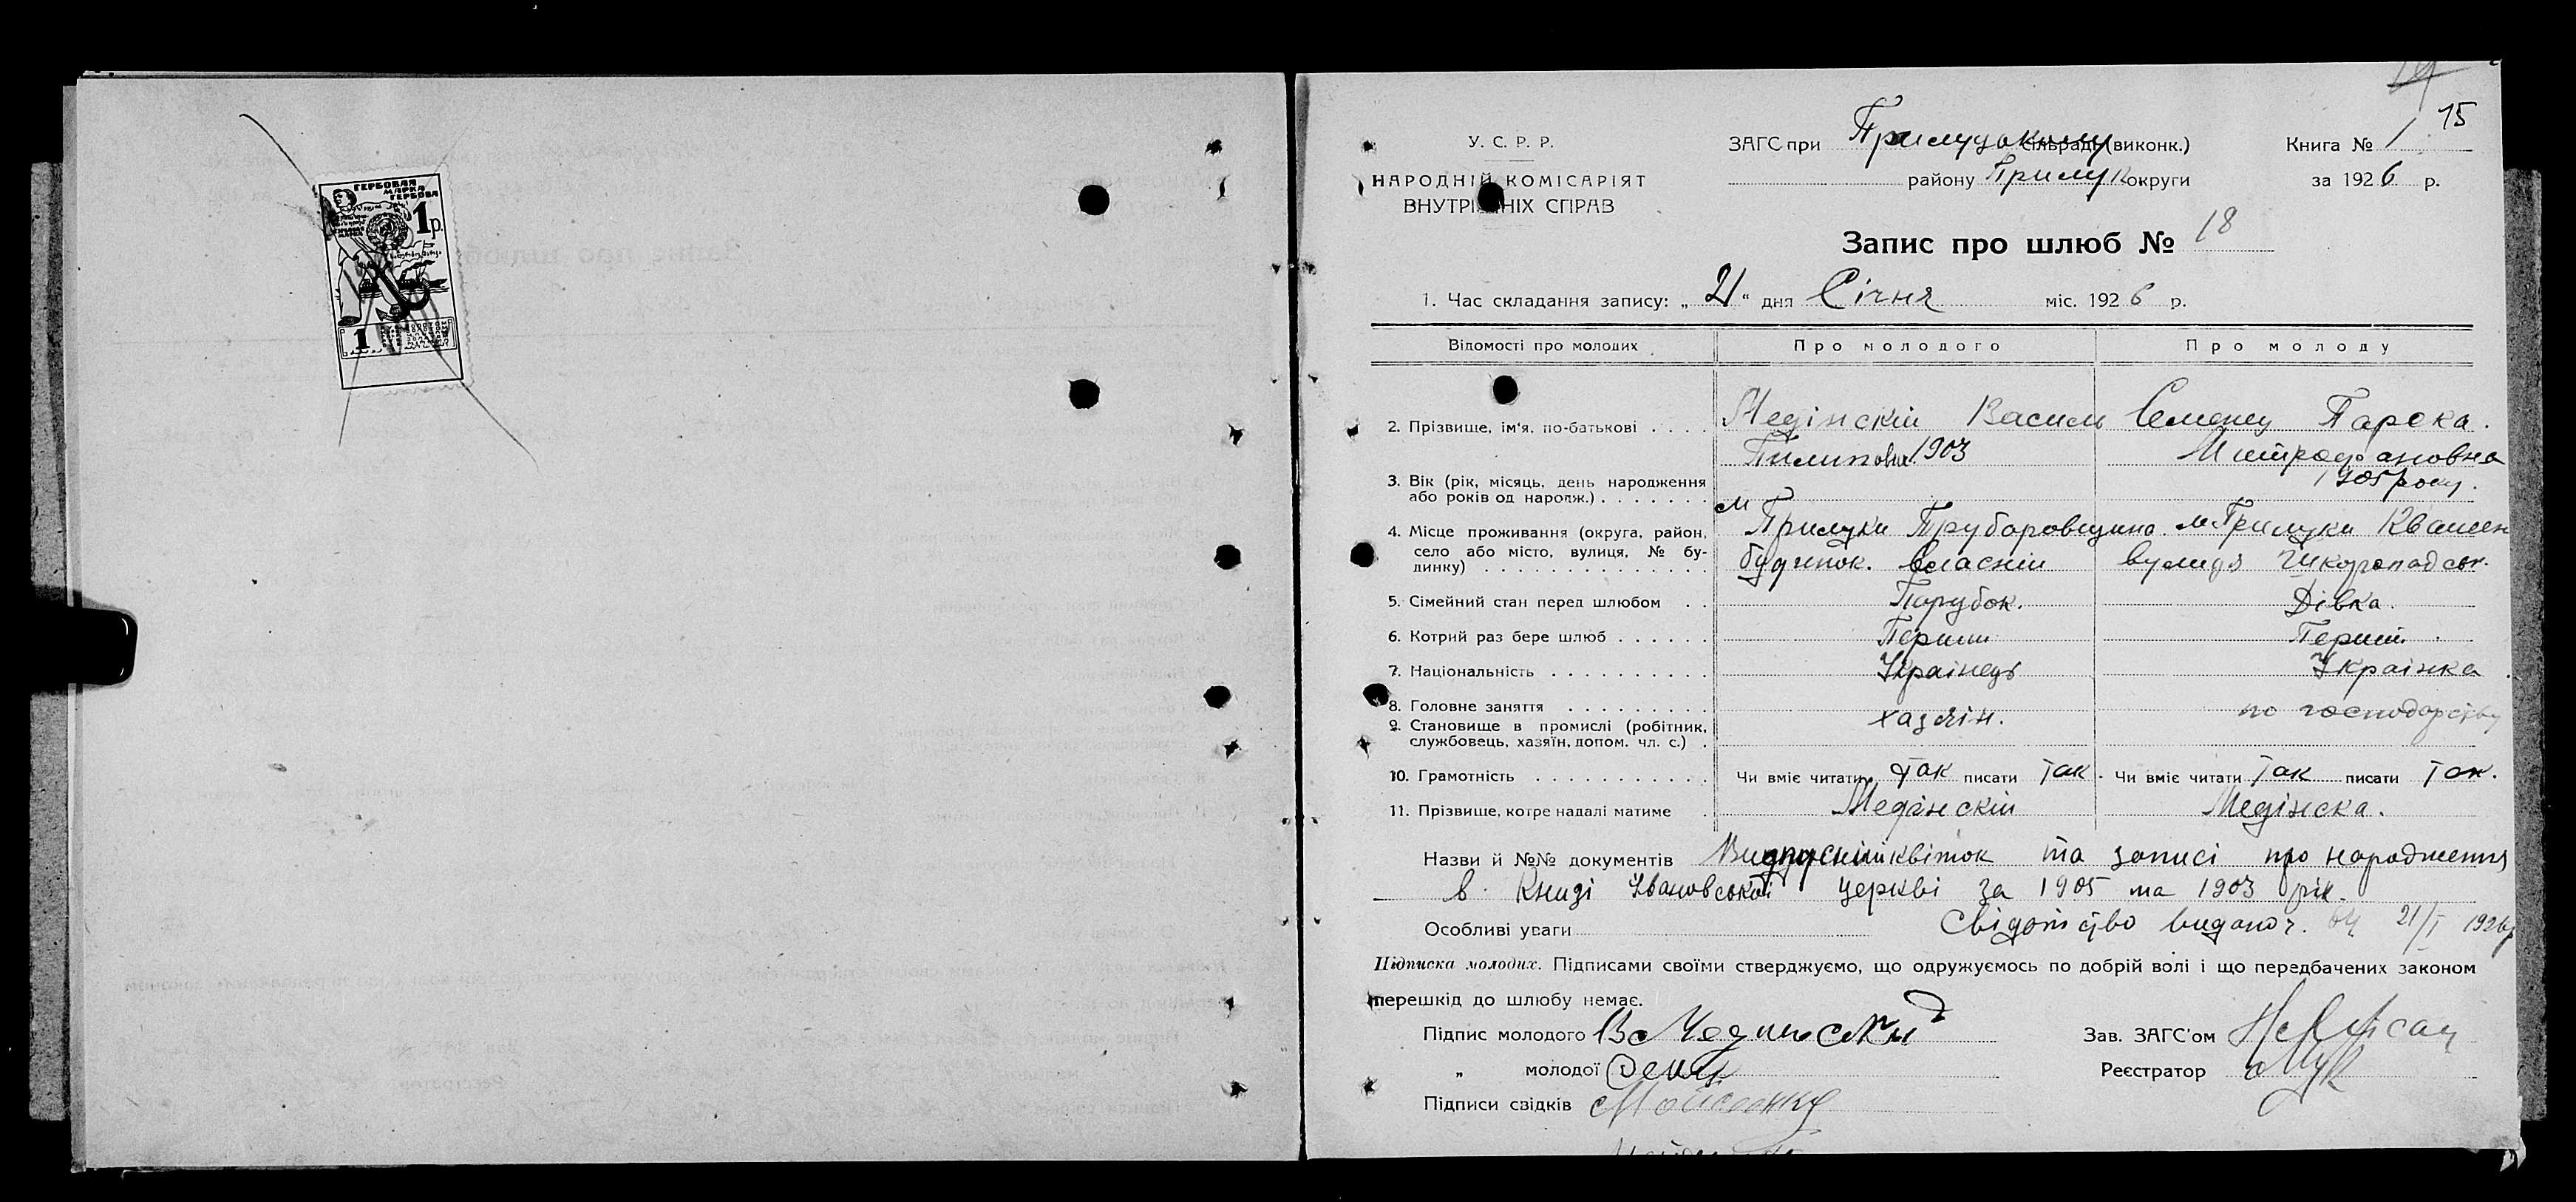 ГЕРБОВАЯ
МАРКА
ГЕРБОВА
1 р.
1
15
У. С. Р. Р.
НАРОДНІЙ КОМІСАРІЯТ
ВНУТРІШНІХ СПРАВ
ЗАГС при Прилуцькому сільраді (виконк.)
району Прилук округи
Книга № 1
за 1926 р.
Запис про шлюб № 18
1. Час складання запису: „21“ дня Січня міс. 1926 р.
Відомості про молодих
Про молодого
Про молоду
2. Прізвище, ім'я, по-батькові . . . . Медінскій Василь
Семенец Параска.
Пилипович 1903
Митрофановна
3. Вік (рік, місяць, день народження
або років од народж.) . . . . . . .
1905 року.
4. Місце проживання (округа, район,
село або місто, вулиця, № бу-
динку) . . . . . . . . . . . . . .
м Прилуки Трубаровщина
будинок. власний
м. Прилуки Квашен
вулиця
5. Сімейний стан перед шлюбом . . Парубок. Дівка.
6. Котрий раз бере шлюб . . . . . . Перший Перший.
7. Національність . . . . . . . . . . Українець Українка
8. Головне заняття . . . . . . . . .
9. Становище в промислі (робітник,
службовець, хазяїн, допом. чл. с.) .
хазяїн.
по господарству
10. Грамотність . . . . . . . . . . . Чи вміє читати так писати так. Чи вміє читати так писати так.
11. Прізвище, котре надалі матиме . Медінскій Медінска.
Назви й №№ документів квіток та записі про народження
в Книзі Івановської церкві за 1905 та 1903 рік.
Особливі уваги Свідоцтво видано 21/I 1926р
Підписка молодих. Підписами своїми стверджуємо, що одружуємось по добрій волі і що передбачених законом
перешкід до шлюбу немає.
Підпис молодого В Мединский
Зав. ЗАГС'ом
„ молодої
Реєстратор
Підписи свідків